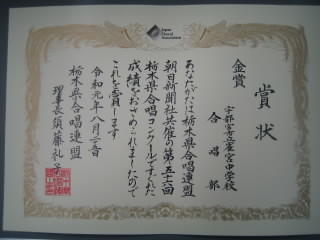 Japan
Choral
Association
賞状
金賞
宇都宮市立雀宮中学校
合唱部
あなたがたは栃木県合唱連盟
朝日新聞社共催の第五十六回
栃木県合唱コンクールですぐれた
成績をおさめられましたので
これを賞します
令和元年八月二十三日
栃木県合唱連盟
理事長須藤礼子